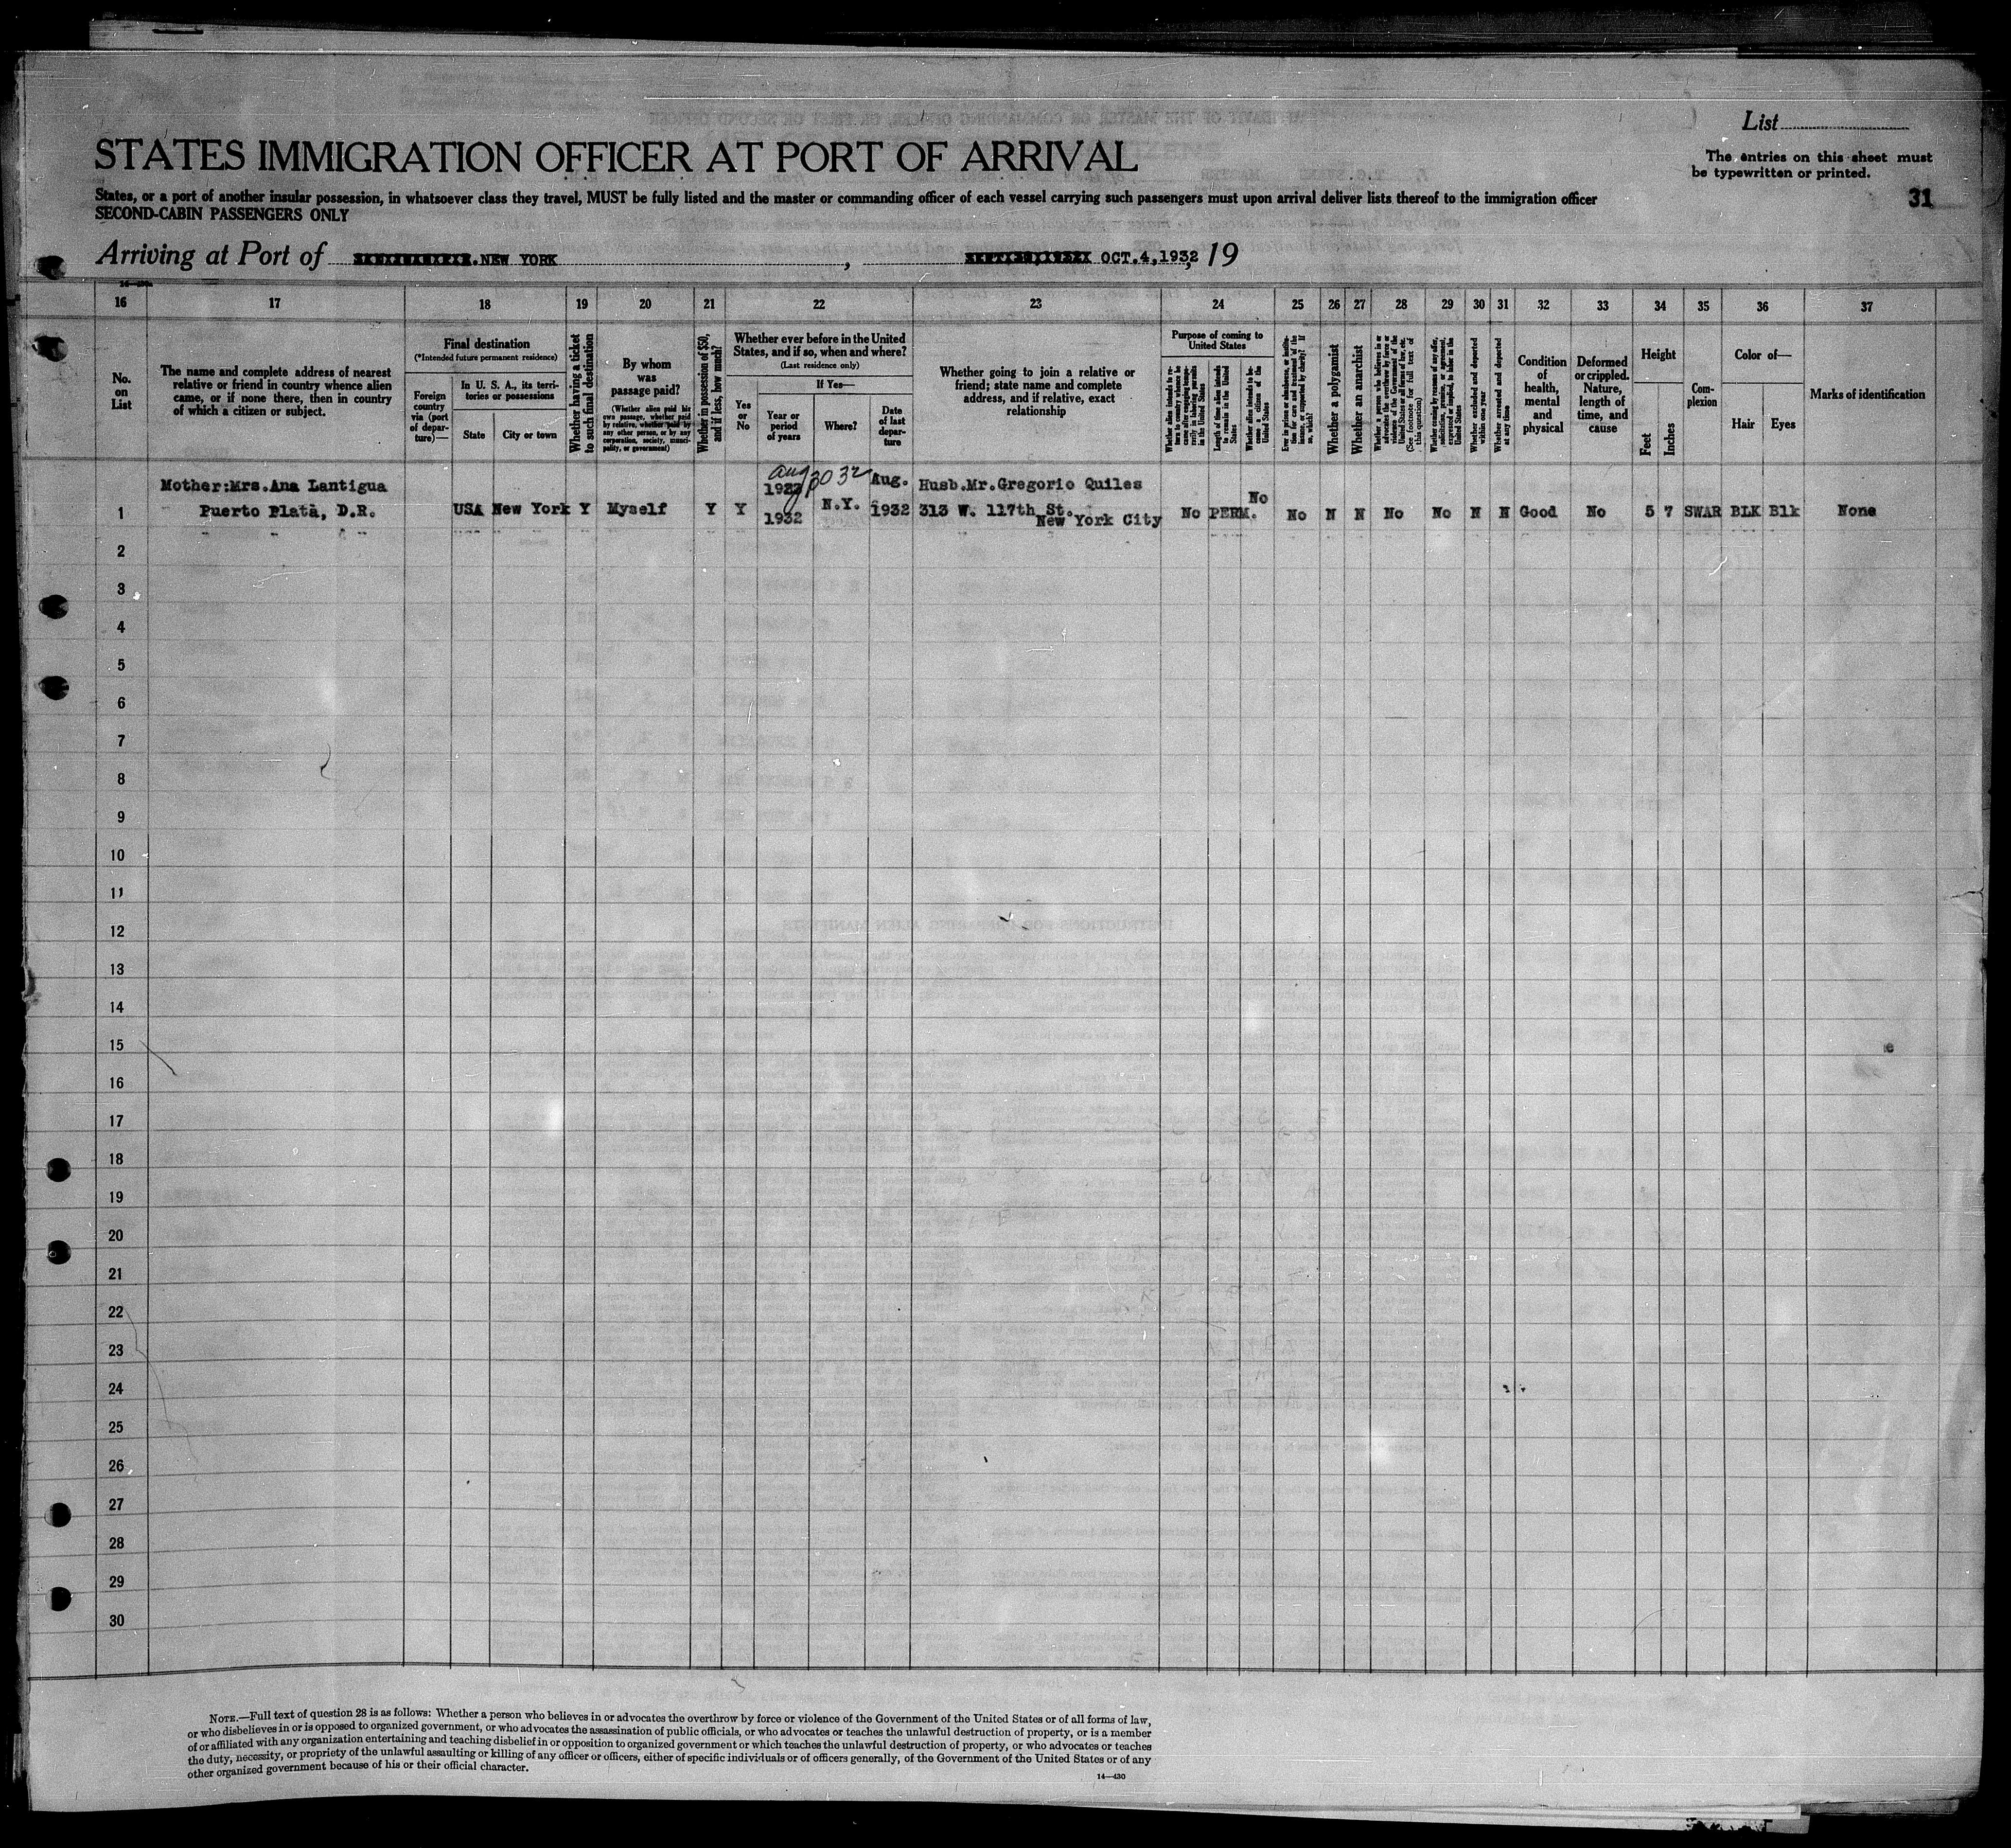 List
STATES IMMIGRATION OFFICER AT PORT OF ARRIVAL
The entries on this sheet must
be typewritten or printed.
States, or a port of another insular possession, in whatsoever class they travel, MUST be fully listed and the master or commanding officer of each vessel carrying such passengers must upon arrival deliver lists thereof to the immigration officer
SECOND-CABIN PASSENGERS ONLY
31
Arriving at Port of NEW YORK, OCT.4,1932, 19
16 17 18 19 20 21 22 23 24 25 26 27 28 29 30 31 32 33 34 35 36 37
No.
on
List
The name and complete address of nearest
relative or friend in country whence alien
came, or if none there, then in country
of which a citizen or subject.
Final destination
(*Intended future permanent residence)
Foreign
country
via (port
of depar-
ture)—
In U. S. A., its terri-
tories or possessions
State
City or town
Whether having a ticket
to such final destination
By whom
was
passage paid?
(Whether alien paid his
own passage, whether paid
by relative, whether paid by
any other person, or by any
corporation, society, munici-
pality, or government)
Whether in possession of $50,
and if less, how much?
Whether ever before in the United
States, and if so, when and where?
(Last residence only)
Yes
or
No
If Yes—
Year or
period
of years
Where?
Date
of last
depar-
ture
Whether going to join a relative or
friend; state name and complete
address, and if relative, exact
relationship
Purpose of coming to
United States
Length of time alien intends
to remain in the United
States
Whether alien intends to be-
come a citizen of the
United States
Whether a polygamist
Whether an anarchist
(See footnote for full text of
this question)
Whether excluded and deported
within one year
Whether arrested and deported
at any time
Condition
of
health,
mental
and
physical
Deformed
or crippled.
Nature,
length of
time, and
cause
Height
Feet
Inches
Com-
plexion
Color of—
Hair
Eyes
Marks of identification
Mother:Mrs.Ana Lantigua
Puerto Plata, D.R.
1
USA New York Y Myself Y Y
Aug
1932
N.Y.
Aug.
1932
Husb.Mr.Gregorio Quiles
313 W. 117th St.
New York City
No PERM. No
No N N No No N N Good No 5 7 SWAR BLK Blk None
2
3
4
5
6
7
8
9
10
11
12
13
14
15
16
17
18
19
20
21
22
23
24
25
26
27
28
29
30
NOTE.—Full text of question 28 is as follows: Whether a person who believes in or advocates the overthrow by force or violence of the Government of the United States or of all forms of law,
or who disbelieves in or is opposed to organized government, or who advocates the assassination of public officials, or who advocates or teaches the unlawful destruction of property, or is a member
of or affiliated with any organization entertaining and teaching disbelief in or opposition to organized government or which teaches the unlawful destruction of property, or who advocates or teaches
the duty, necessity, or propriety of the unlawful assaulting or killing of any officer or officers, either of specific individuals or of officers generally, of the Government of the United States or of any
other organized government because of his or their official character.
14—430